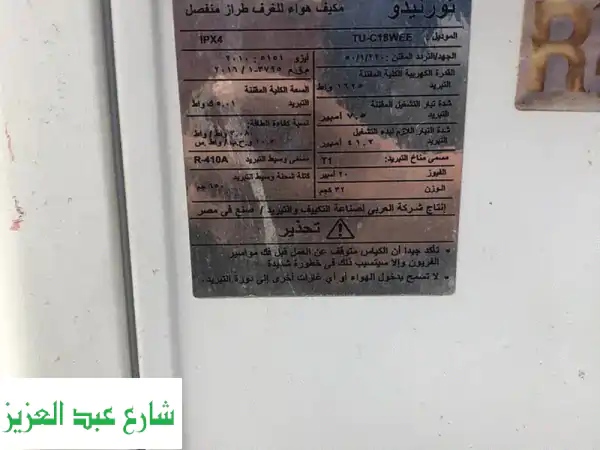 تورنيدو
مكيف هواء للغرف طراز منفصل
الموديل: TU-C18WEE
IPX4
الجهد/التردد المقنن: ٥٠/١/٢٢٠
أيزو ٥١٥١ : ٢٠١٠
م.ق.م ٣٧٩٥-٢٠١٦/١
القدرة الكهربية الكلية المقننة
التبريد ١٦٢٥ واط
السعة الكلية المقننة
التبريد ٥,٠١ ك واط
شدة تيار التشغيل المقننة
التبريد ٧,٥ أمبير
نسبة كفاءة الطاقة
٣,٠٨ واط / واط
شدة التيار اللازم لبدء التشغيل
٤١,٢ أمبير
مسمى مناخ التبريد: T1
مسمى وسيط التبريد R-410A
الفيوز ٢٠ أمبير
كتلة شحنة وسيط التبريد
الوزن ٣٢ كجم
إنتاج شركة العربي لصناعة التكييف والتبريد / صنع في مصر
تحذير
• تأكد جيدا أن الكباس متوقف عن العمل قبل فك مواسير
الفريون وإلا سيتسبب ذلك في خطورة شديدة
• لا تسمح بدخول الهواء أو أي غازات أخرى إلى دورة التبريد.
شارع عبد العزيز